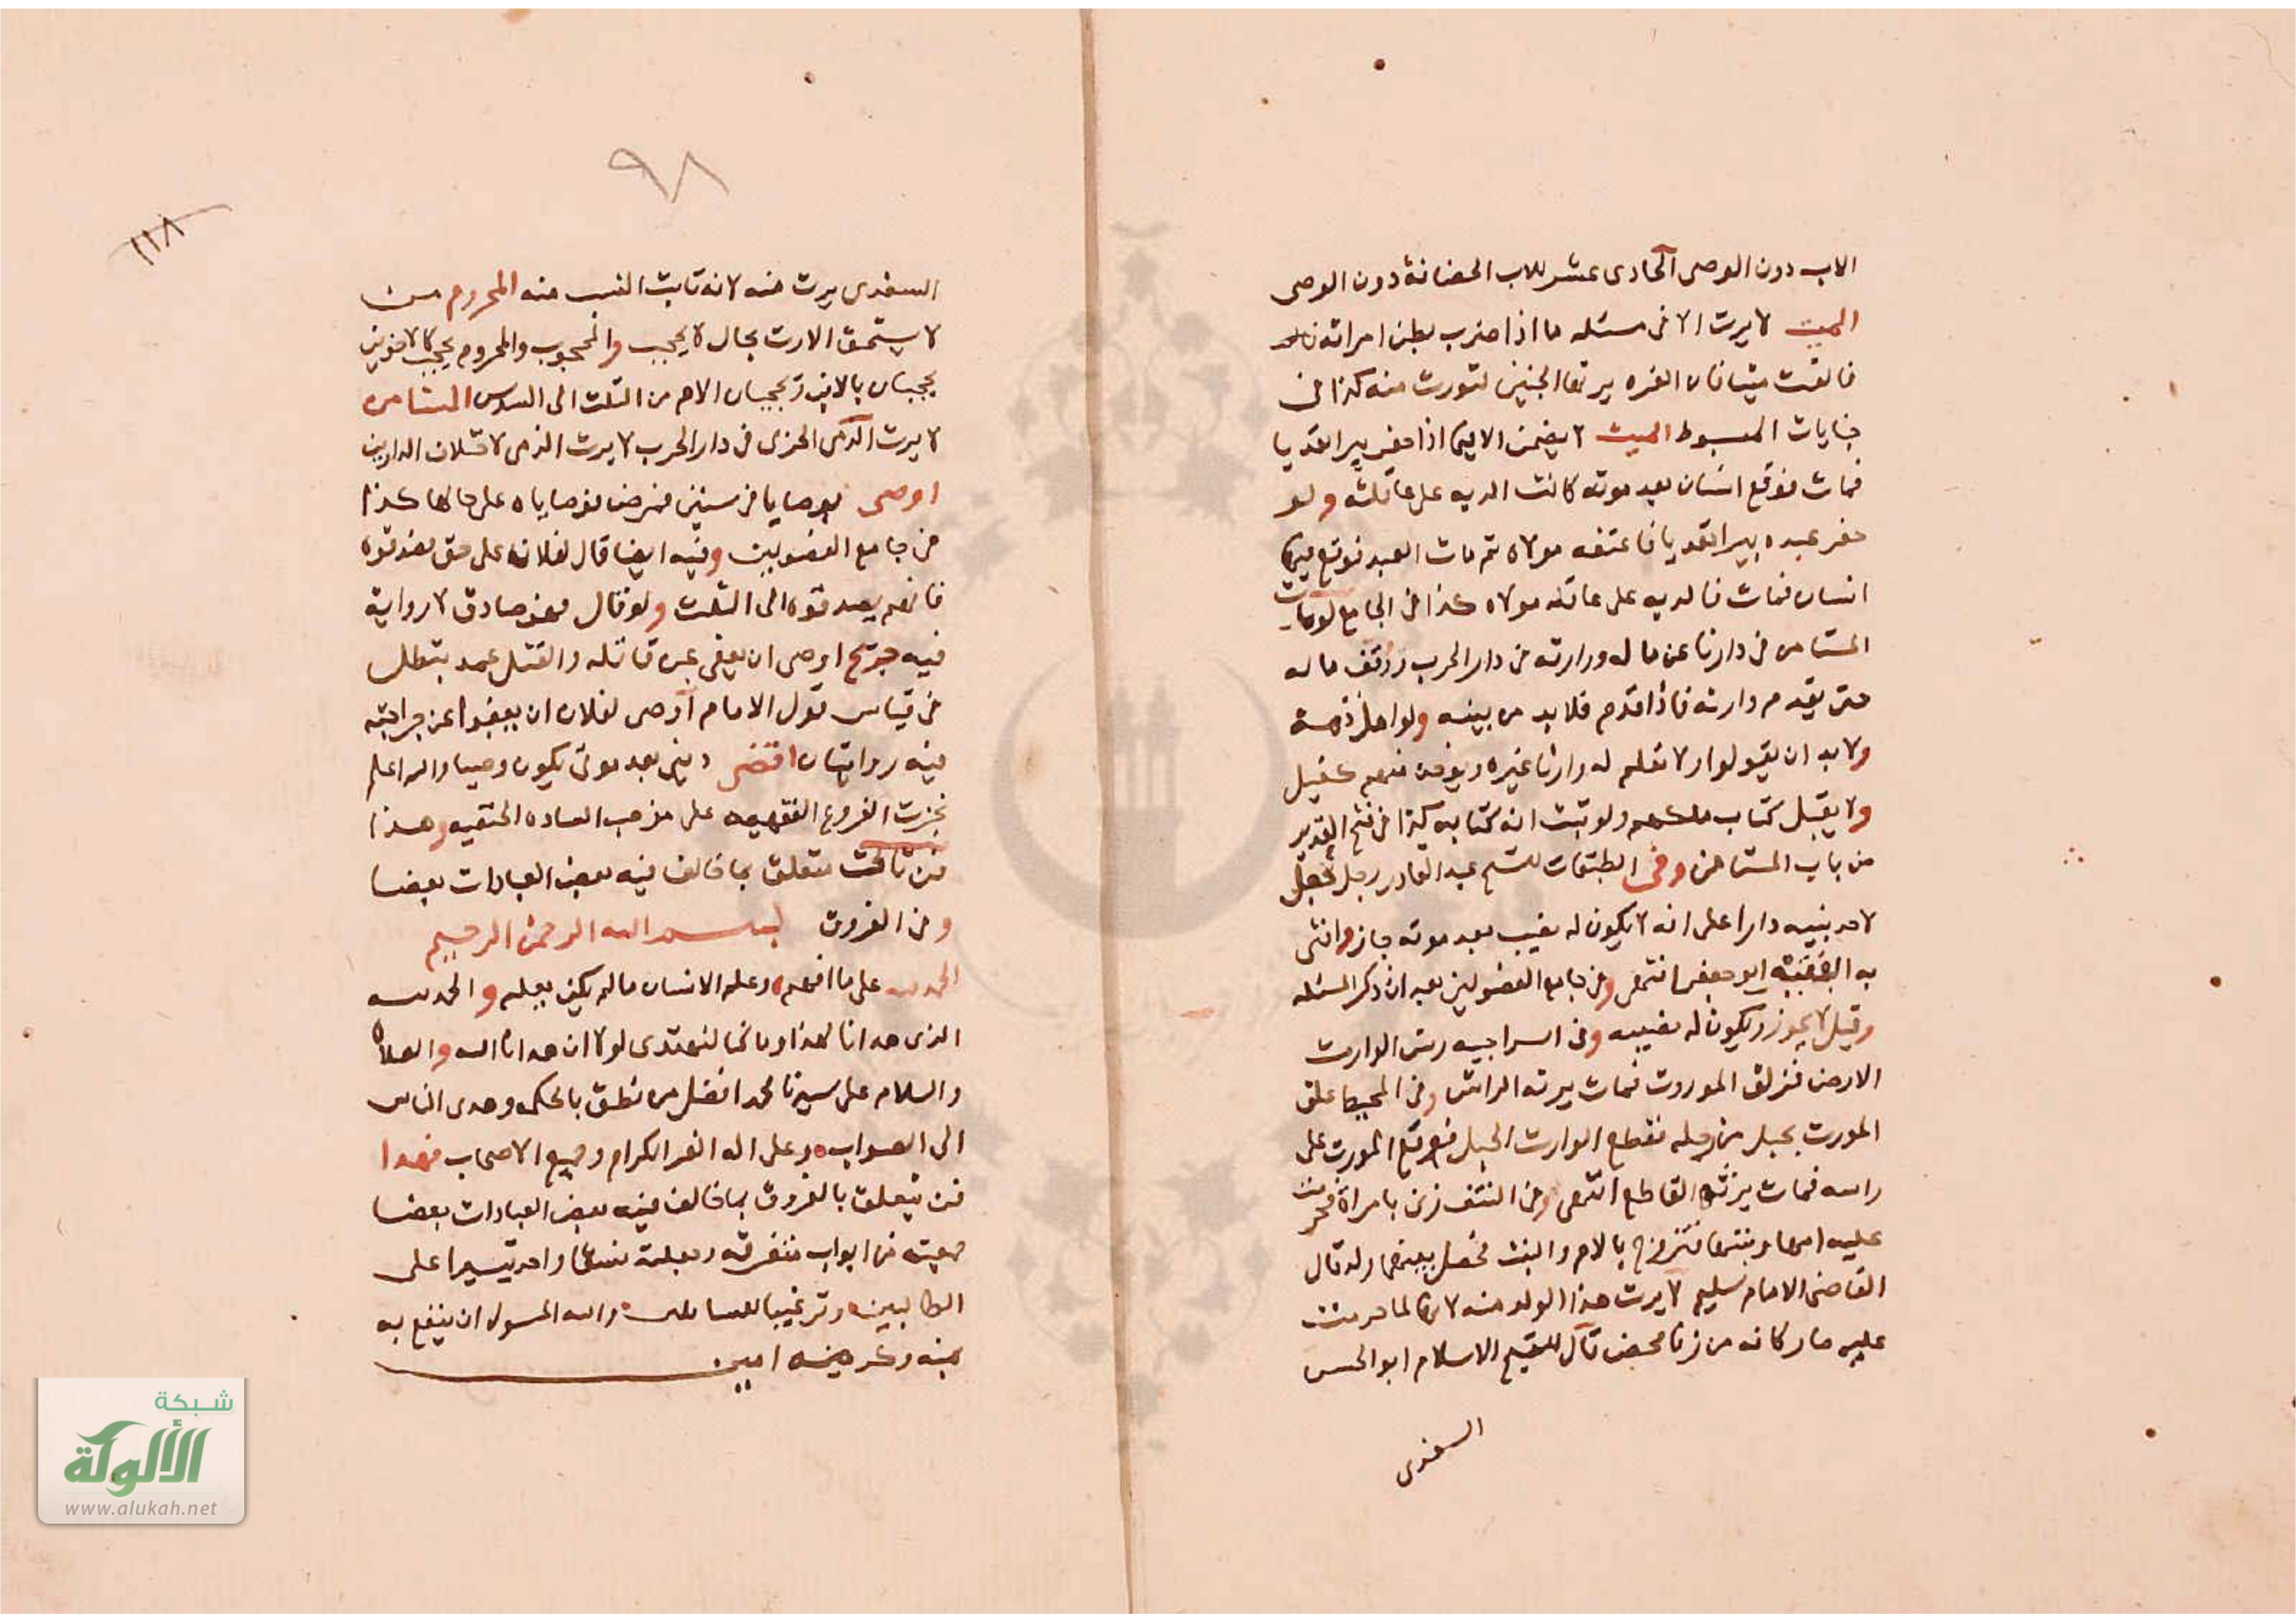 الاب دون الوصى الحادى عشر للاب الحضانة دون الوصى
الميت لا يرث الا فى مسئله ما اذا ضرب بطن امراته
فالقت ميتا فان الغره يرثها الجنين لتورث منه كذا فى
جنايات المبسوط الميت لا يضمن الا فيما اذا حفر بيرا تعديا
فمات فوقع انسان بعد موته كانت الديه على عاقلته ولو
حفر عبده بيرا تعديا فاعتقه مولاه ثم مات العبد فوقع فيها
انسان فمات فالديه على عاقله مولاه كذا فى الجامع لو مات
المستامن فى دارنا عن مال وورارثه فى دار الحرب ووقف ماله
حتى يقدم وارثه فاذا قدم فلابد من بينه ولو اهل ذمة
ولا بد ان يقولوا لا نعلم له وارثا غيره ويوخذ منهم كفيل
ولا يقبل كتاب ملكهم ولو ثبت انه كتابه كذا فى فتح القدير
من باب المستامن وفى الطبقات للشيخ عبد القادر رجل جعل
لاحد بنيه دارا على انه لا يكون له نصيب بعد موته جاز وافتى
به الفقيه ابو جعفر انتهى وفى جامع الفصولين بعد ان ذكر المسئله
وقيل لا يجوز ويكون له نصيبه وفى السراجيه رش الوارث
الارض فزلق الموروث فمات يرثه الراش وفى المحيط علق
المورث بحبل من رجله فقطع الوارث الحبل فوقع المورث على
راسه فمات يرثه القاطع انتهى وفى النتف زنى بامراة فحرمت
عليه امها وبنتها فتزوج بالام والبنت فحصل بينهما ولد قال
القاضى الامام سليم لا يرث هذا الولد منه لانها لما حرمت
عليه صار كانه من زنا محض قال الشيخ الاسلام ابو الحسن
السغدى
٩٨
١١٨
السغدى يرث منه لانه ثابت النسب منه المحروم من
لا يستحق الارث بحال لا يحجب والمحجوب والمحروم يحجب كالاخوين
يحجبان بالاب ويحجبان الام من الثلث الى السدس المستامن
لا يرث الذمى الحربى فى دار الحرب لا يرث الذمى لاختلاف الدارين
اوصى بوصايا فى سنين فمرض فوصاياه على حالها كذا
فى جامع الفصولين وفيه ايضا قال لفلان على حق فصدقوه
فانهم يصدقوه الى الثلث ولو قال فهو صادق لا رواية
فيه جريح اوصى ان يعفى عن قاتله والقتل عمد بتطل
فى قياس قول الامام اوصى لفلان ان يعفوا عن جراحته
فيه روايتان اقض دينى بعد موتى يكون وصيا والله اعلم
نجزت الفروع الفقهيه على مذهب الساده الحنفيه وهذا
فن ثالث متعلق بما خالف فيه بعض العبادات بعضا
وفى الفروق بسم الله الرحمن الرحيم
الحمد لله على ما انعم وعلم الانسان ما لم يكن يعلم والحمد لله
الذى هدانا لهذا وما كنا لنهتدى لولا ان هدانا الله والصلاه
والسلام على سيدنا محمد افضل من نطق بالحكمه وهدى الناس
الى الصواب وعلى اله الغر الكرام وجميع الاصحاب فهذا
فن يتعلق بالفروق بما خالف فيه بعض العبادات بعضا
جمعته من ابواب متفرقه وجعلته نسقا واحد تيسيرا على
الطالبين وترغيبا للسايلين والله المسول ان ينفع به
بمنه وكرمه امين
شبكة
الألوكة
www.alukah.net